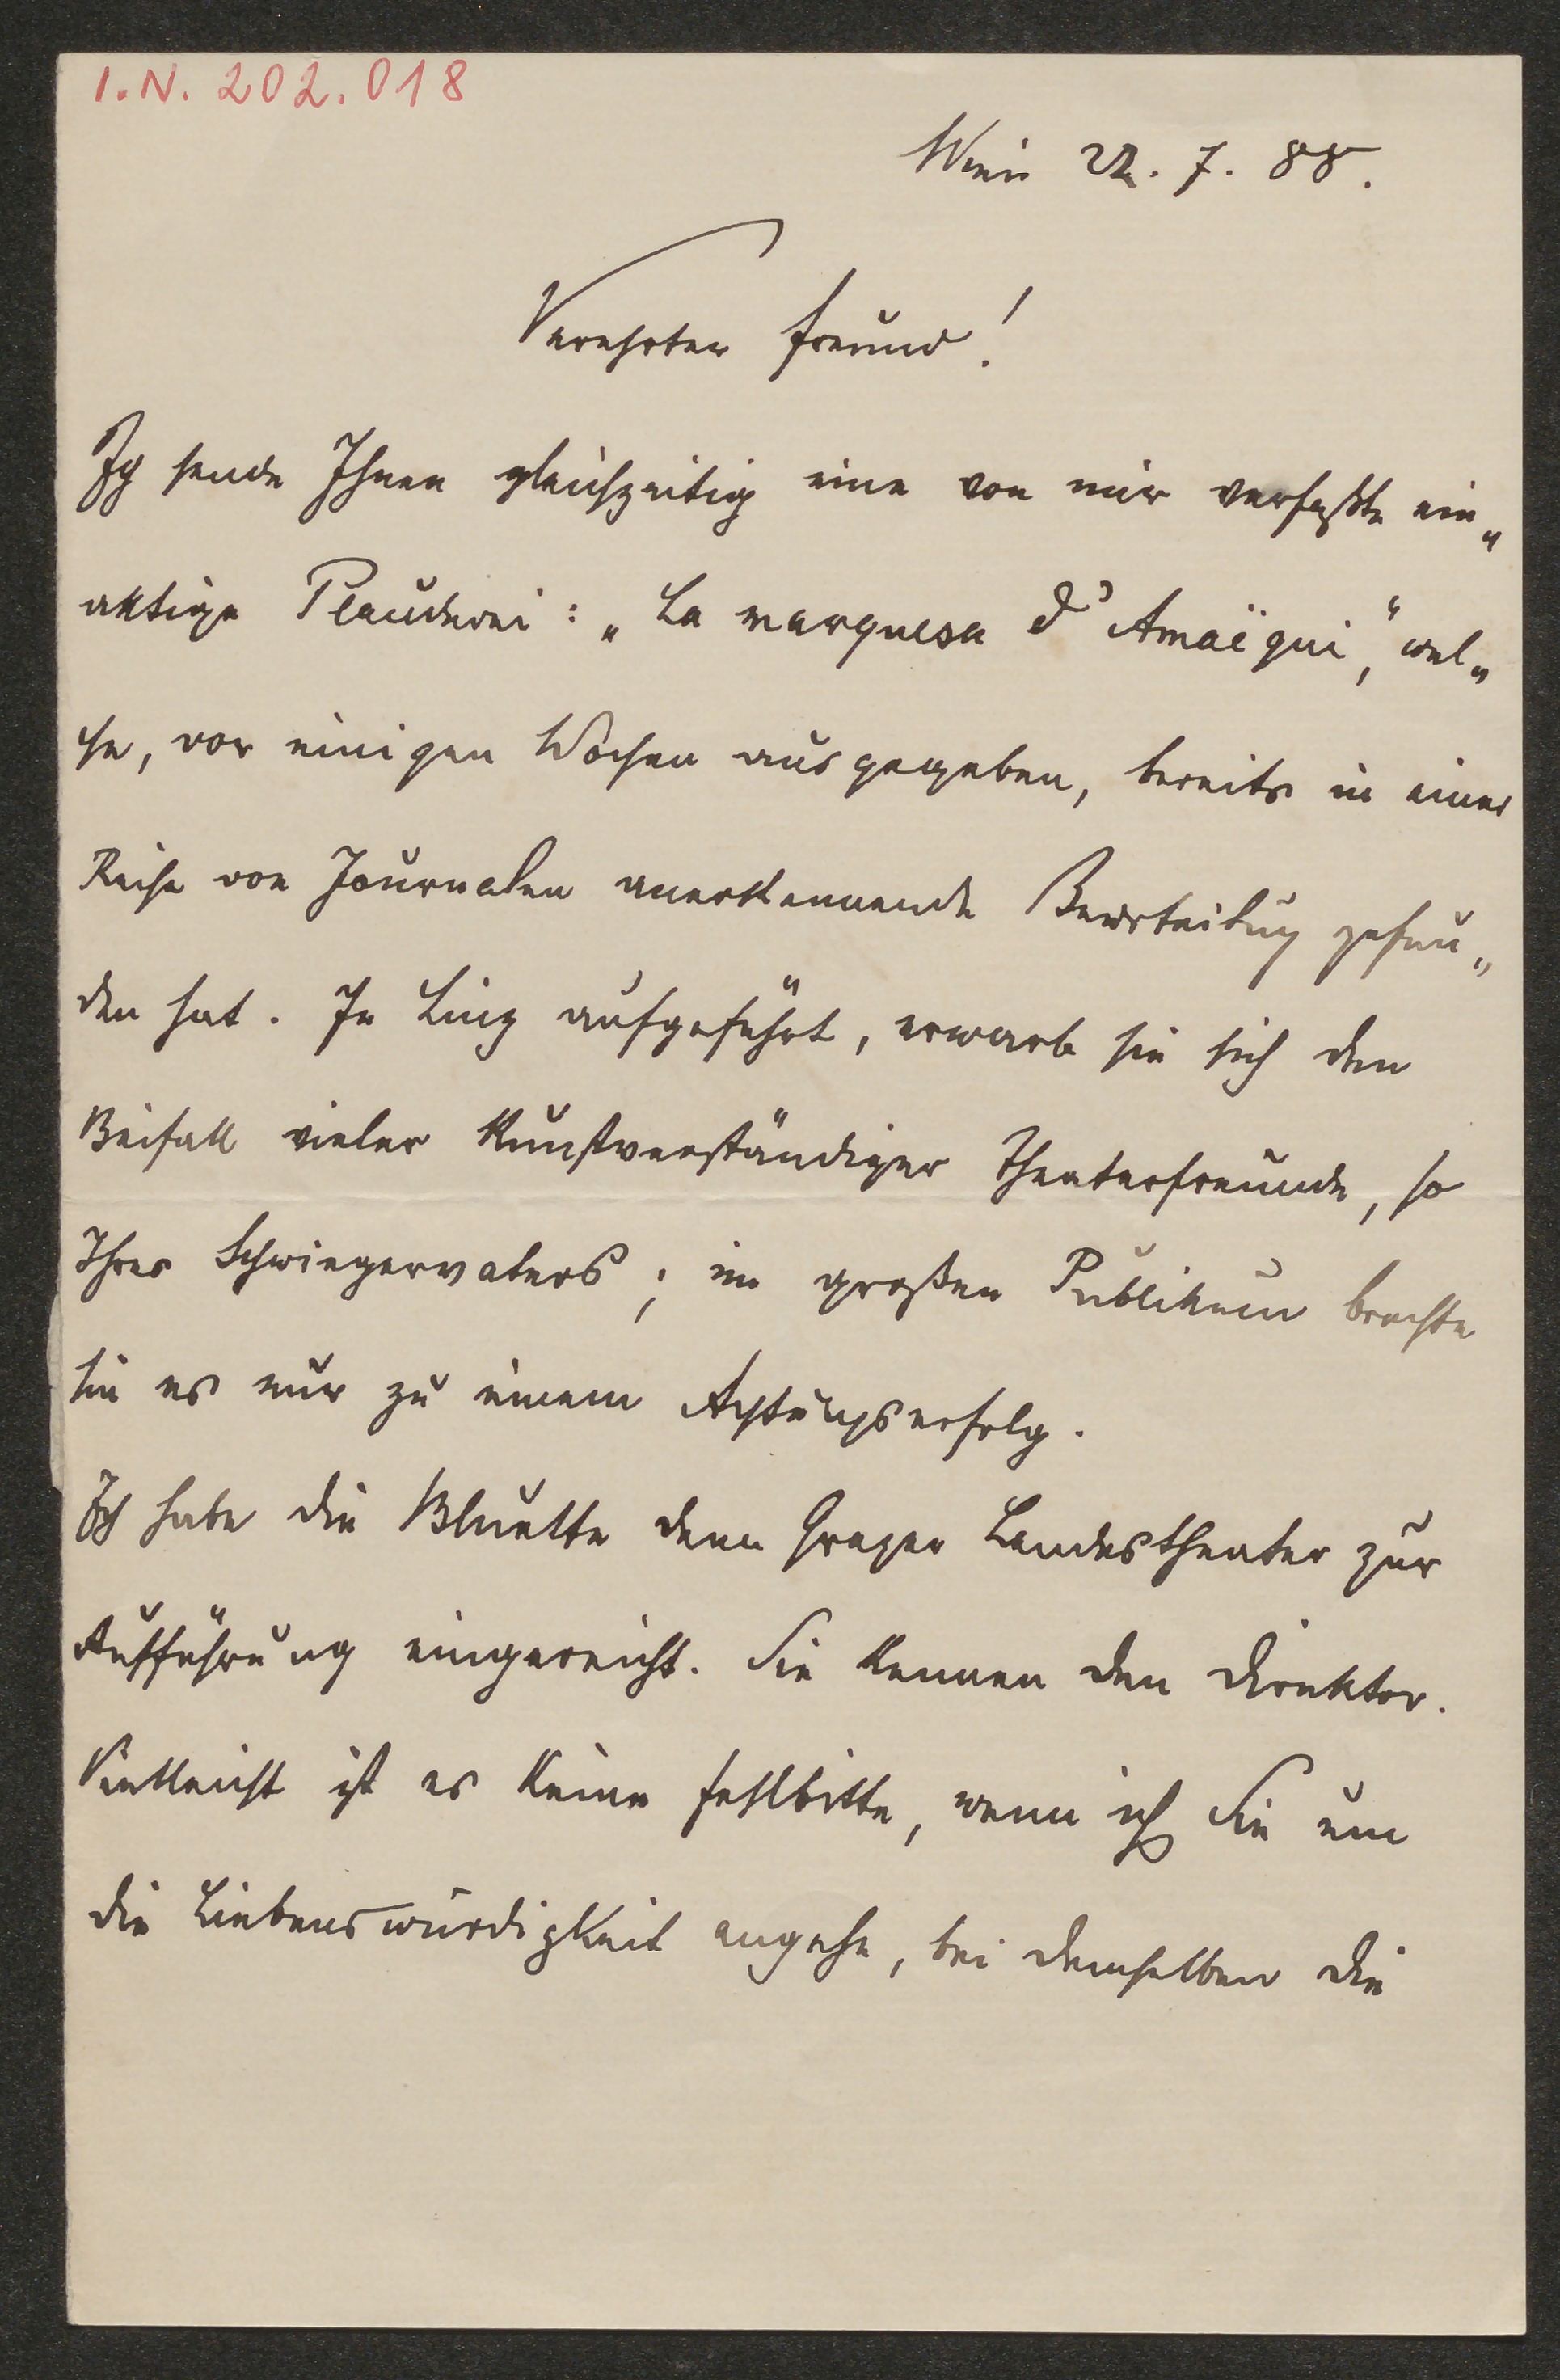 I.N. 202.018
Wien 22. 7. 88.
Verehrter Freund!
Ich sende Ihnen gleichzeitig eine von mir verfaßte ein„
aktige Plauderei: „La marquesa d'Amaëgui,“ wel„
che, vor einigen Wochen ausgegeben, bereits in einer
Reihe von Journalen anerkennende Beurteilung gefun„
den hat. In Linz aufgeführt, erwarb sie sich den
Beifall vieler kunstverständiger Theaterfreunde, so
Ihres Schwiegervaters; im großen Publikum brachte
sie es nur zu einem Achtungserfolg.
Ich habe die Bluette dem Grazer Landestheater zur
Aufführung eingereicht. Sie kennen den Direktor.
Vielleicht ist es keine Fehlbitte, wenn ich Sie um
die Liebenswürdigkeit angehe, bei demselben die